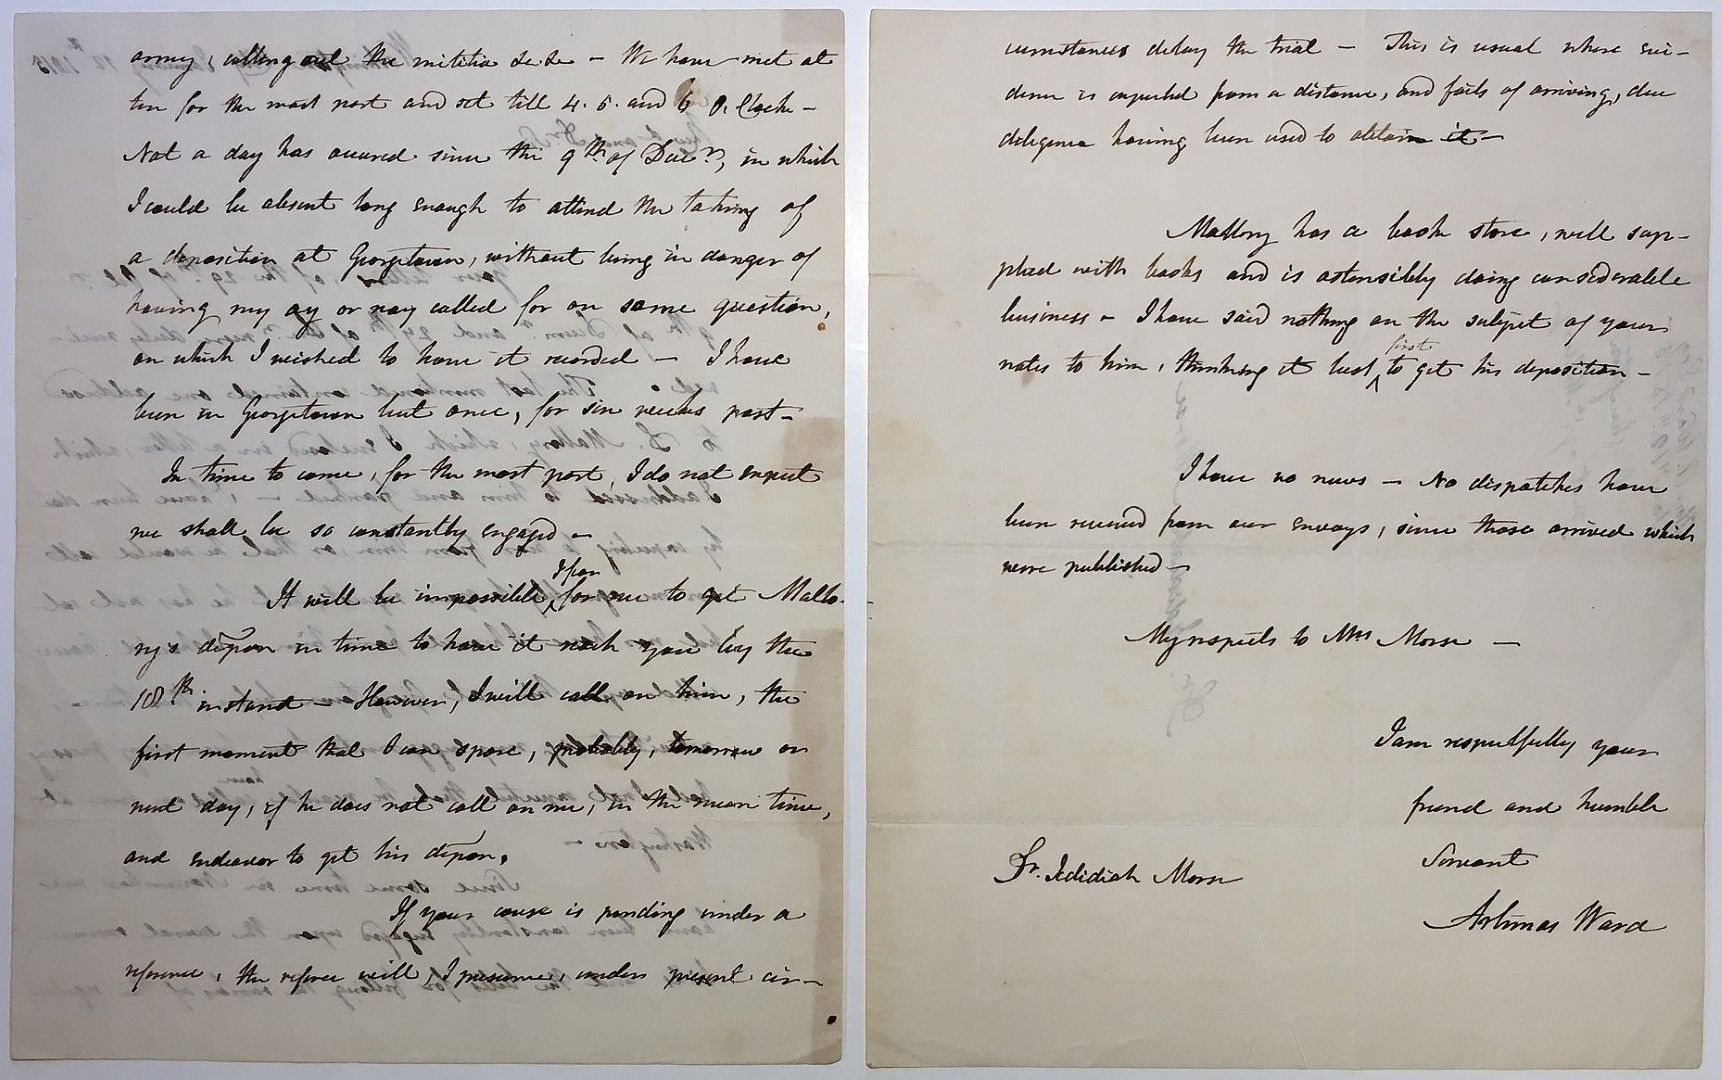 army, calling out the militia &c &c – We have met at
ten for the most part and set till 4. 5. and 6 O. Clock –
Not a day has occured since the 9th of Decr, in which
I could be absent long enough to attend the taking of
a deposition at Georgetown, without being in danger of
having my ay or nay called for on some question,
on which I wished to have it recorded – I have
been in Georgetown but once, for six weeks past –
In time to come, for the most part, I do not expect
we shall be so constantly engaged –
It will be impossible, I fear for me to get Mallo-
ry's depon in time to have it reach you by the
18th instand – However, I will call on him, the
first moment that I can spare, probably, tomorrow or
next day, if he does not call on me, in the mean time,
and endeavor to get his depon.
If your cause is pending under a
reference, the referee will, I presume, under present cir-
cumstances delay the trial – This is usual where evi-
dence is expected from a distance, and fails of arriving, due
deligence having been used to obtain it –
Mallory has a book store, well sup-
plied with books and is ostensibly doing considerable
business – I have said nothing on the subject of your
notes to him, thinking it best first to get his deposition –
I have no news – No dispatches have
been received from our envoys, since those arrived which
were published –
My respects to Mrs Morse –
I am respectfully your
friend and humble
Servant
Artemas Ward
Dr. Jedidiah Morse